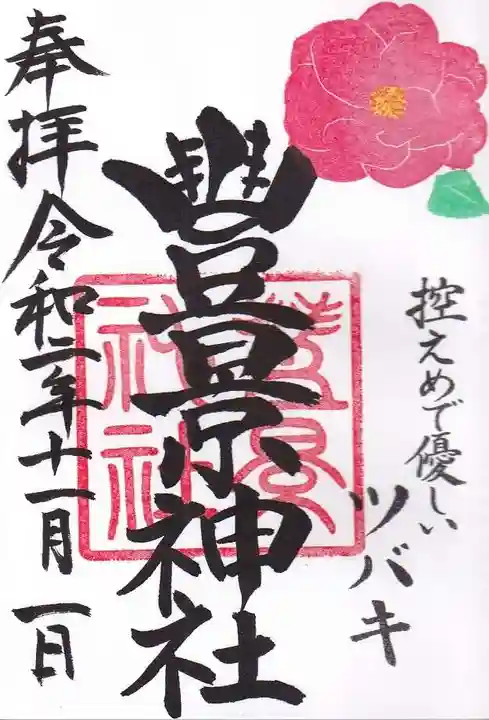 控えめで優しい
ツバキ
豐景神社
豐景
神社
奉拝令和二年十一月一日